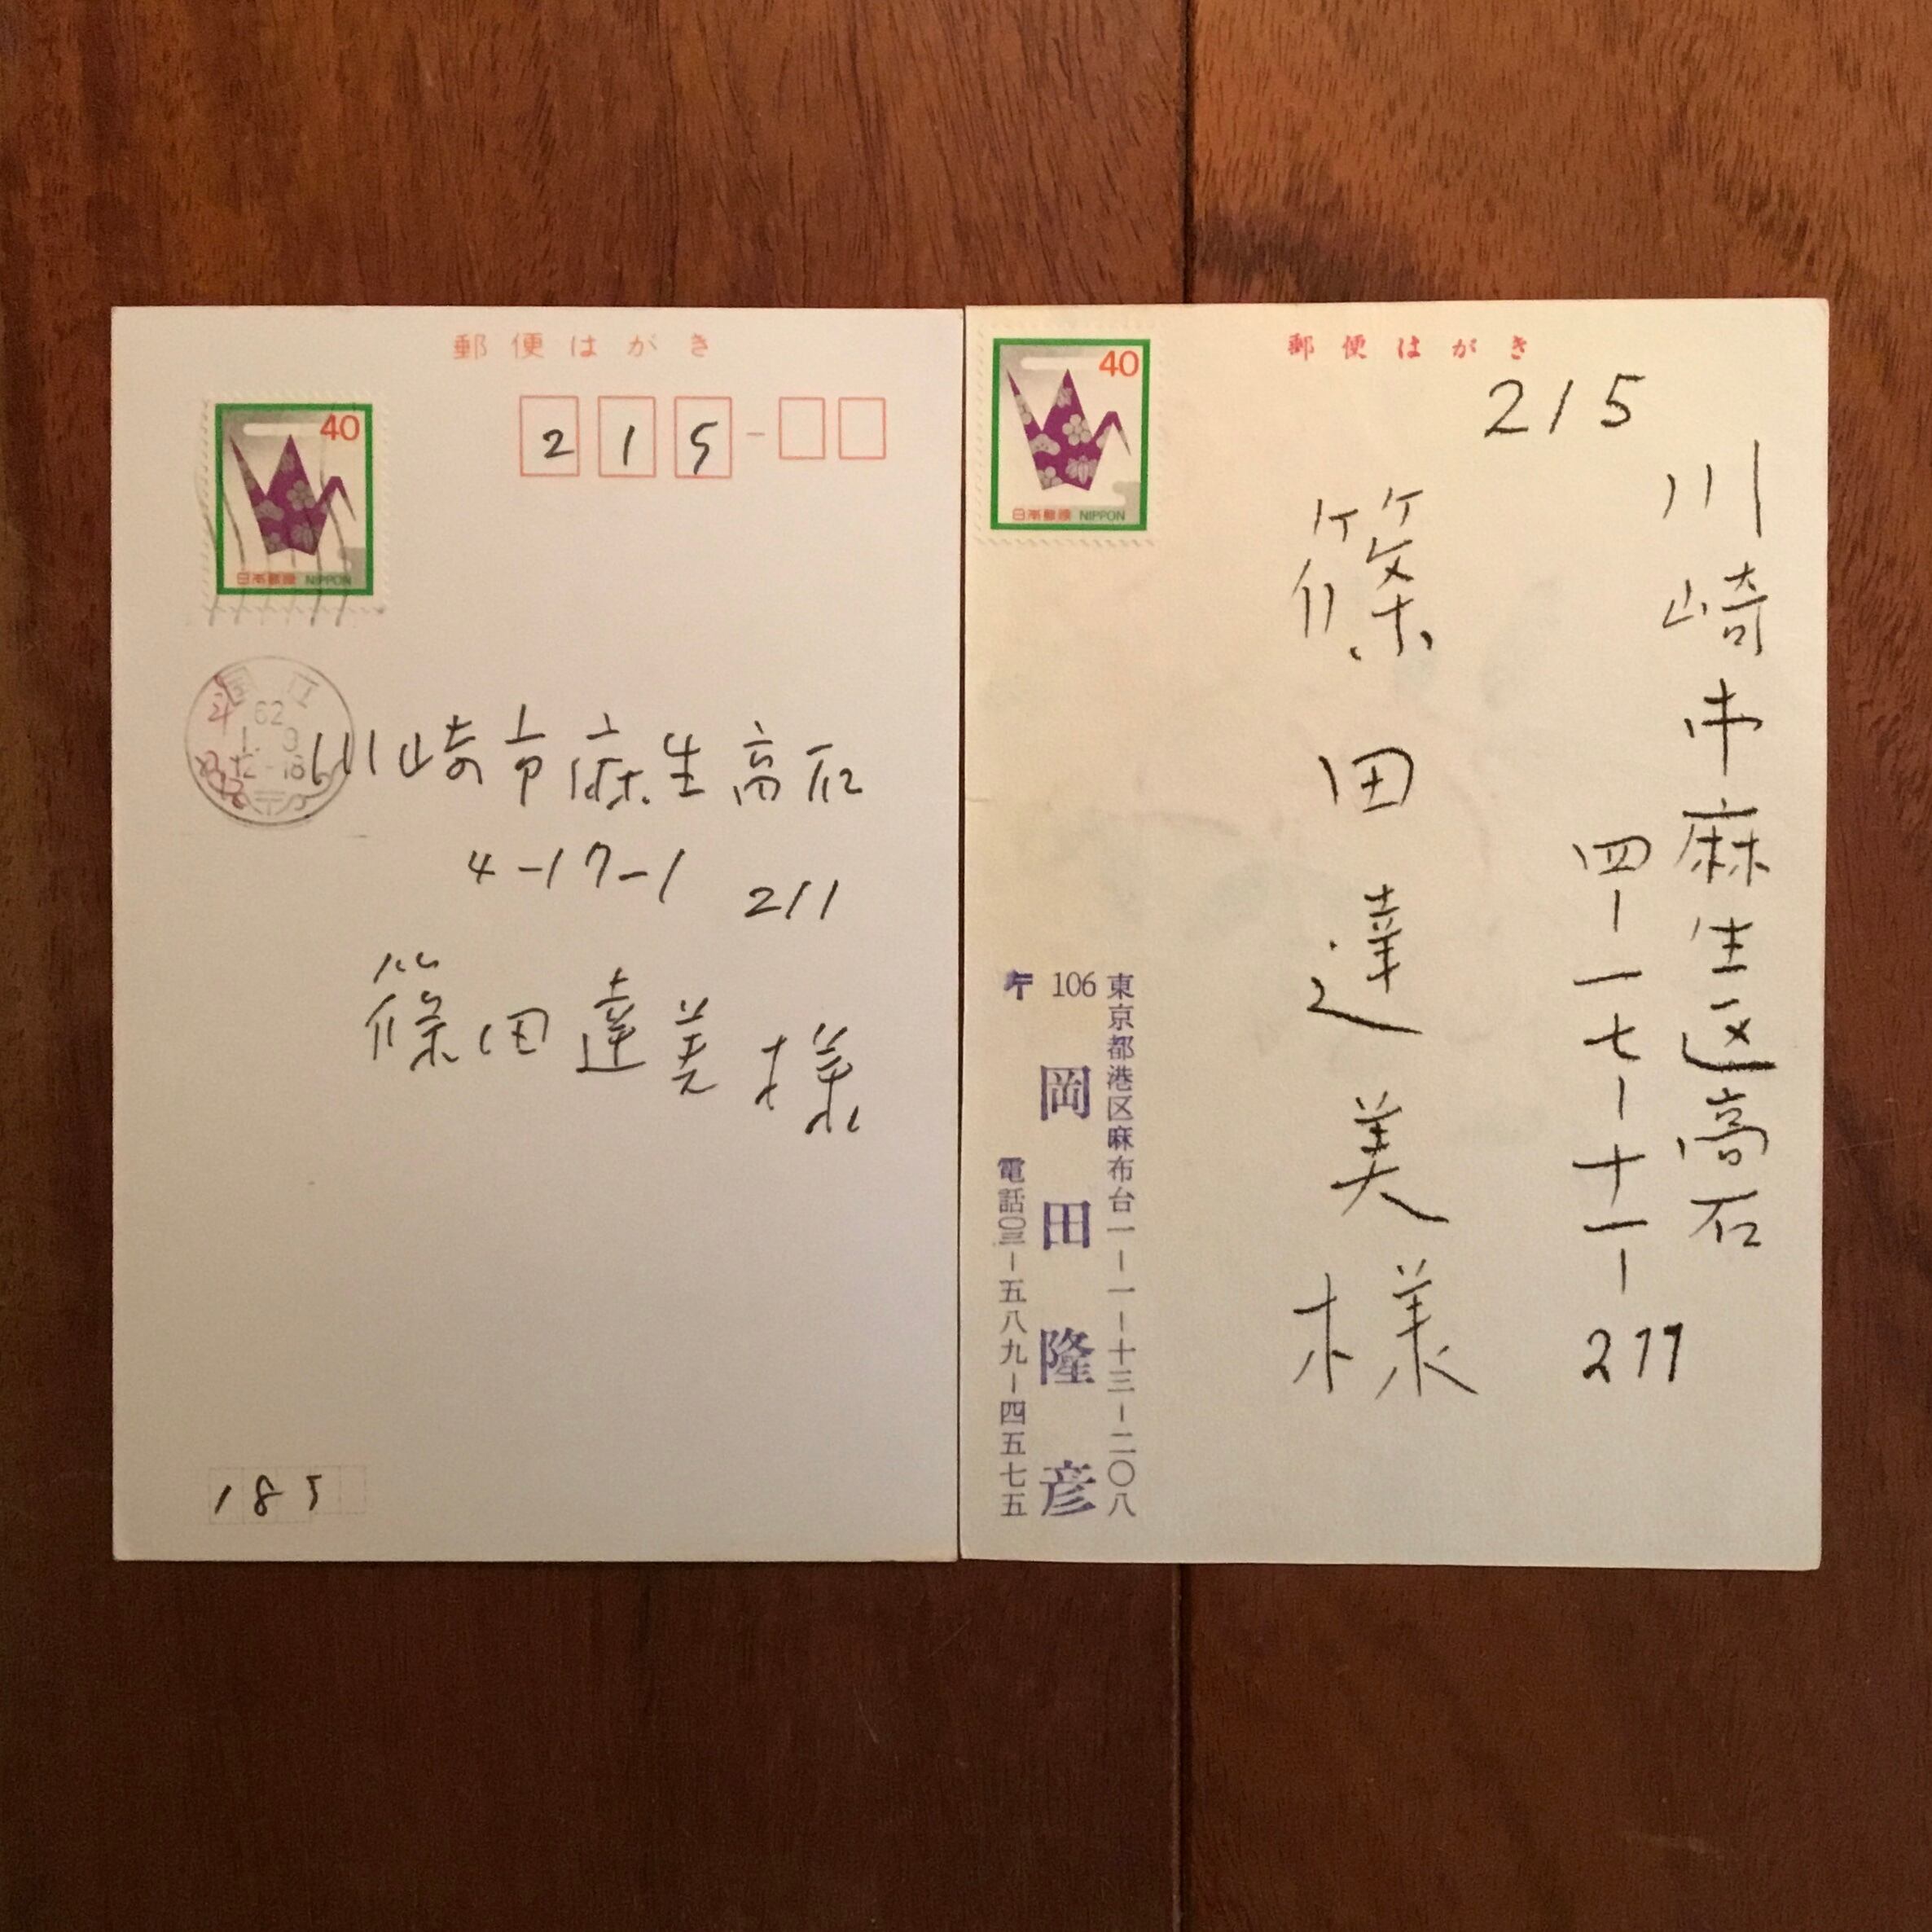 郵便はがき
40
日本郵便 NIPPON
215
62
1. 3
12-18
川崎市麻生高石
4-17-1 211
篠田達美様
185
郵便はがき
40
日本郵便 NIPPON
215
川崎市麻生区高石
四-一七-十一-211
篠田達美様
東京都港区麻布台一-一-十三-二〇八
〒106
岡田隆彦
電話〇三-五八九-四五七五